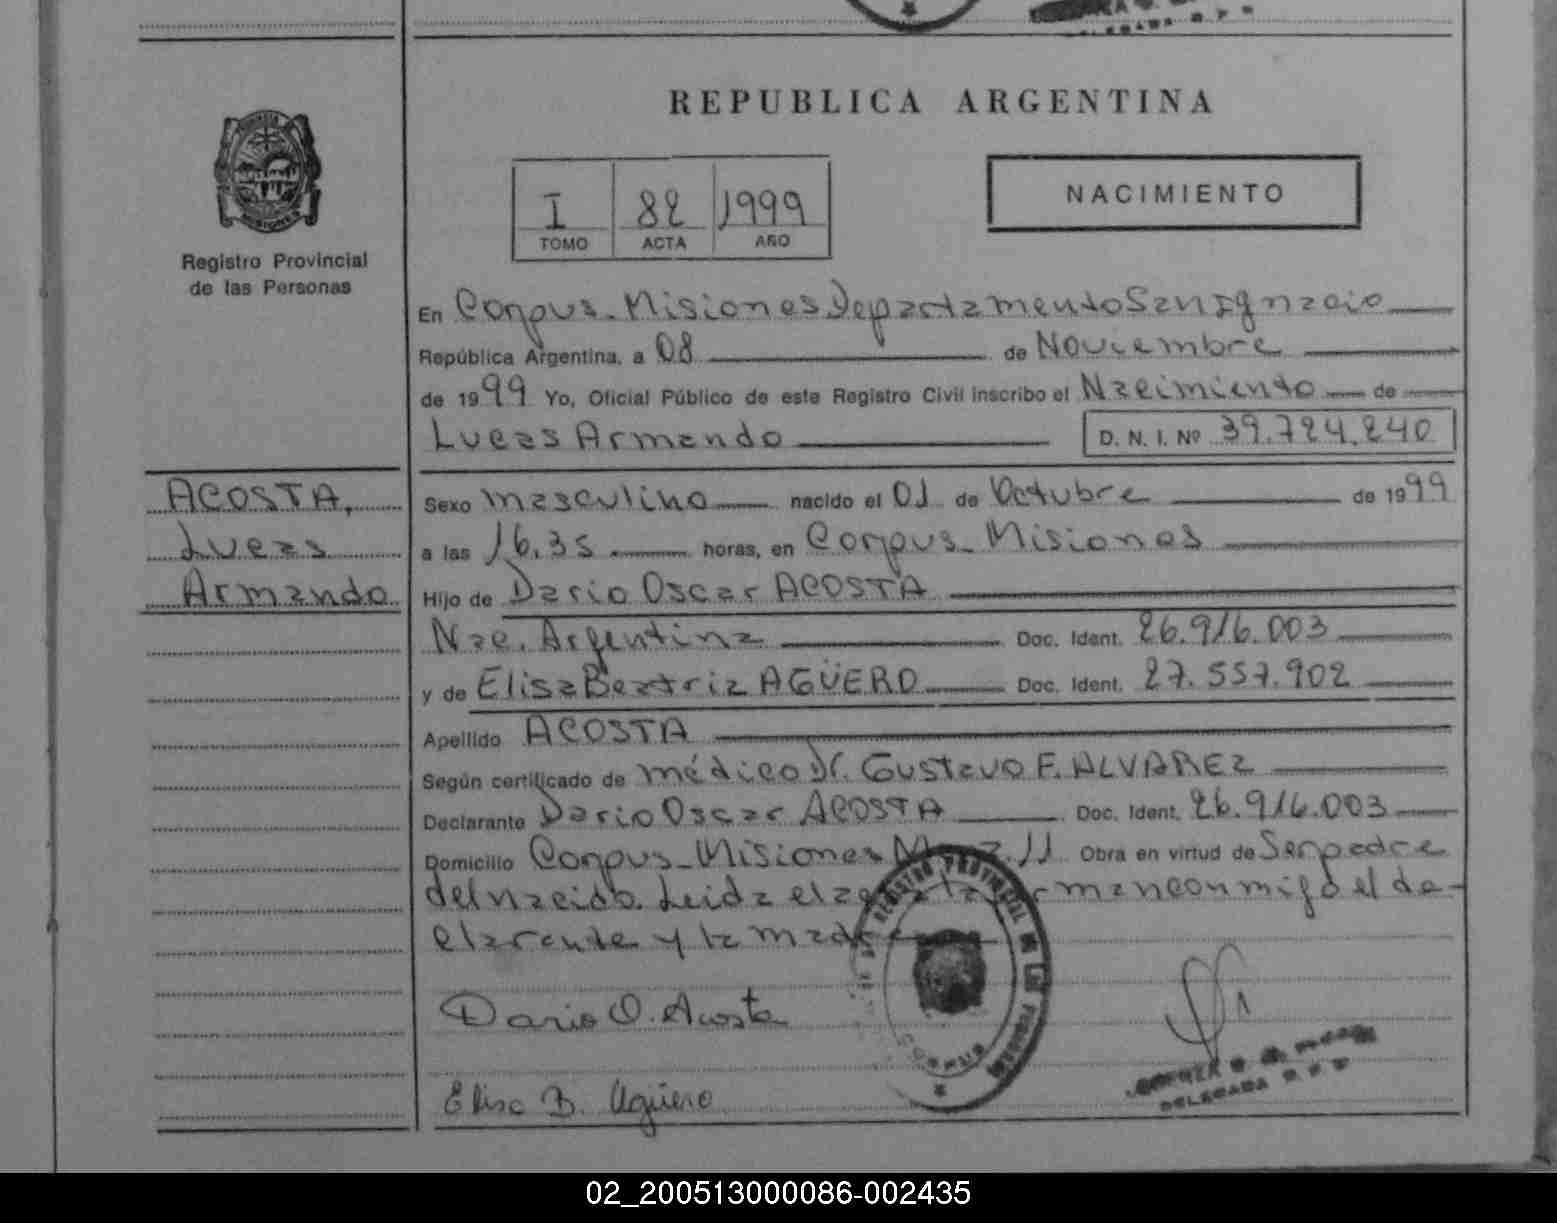 REPUBLICA ARGENTINA
Registro Provincial
de las Personas
I 82 1999
TOMO ACTA AÑO
NACIMIENTO
En Corpus - Misiones Departamento San Ignacio
República Argentina, a 08 de Noviembre
de 1999 Yo, Oficial Público de este Registro Civil inscribo el Nacimiento de
Lucas Armando D. N. I. Nº 39.724.240
ACOSTA,
Lucas
Armando
Sexo masculino nacido el 01 de Octubre de 1999
a las 16.35 horas, en Corpus - Misiones
Hijo de Dario Oscar ACOSTA
Nac. Argentina Doc. Ident. 26.916.003
y de Elisa Beatriz AGÜERO Doc. Ident. 27.557.902
Apellido ACOSTA
Según certificado de médico Dr. Gustavo F. ALVAREZ
Declarante Dario Oscar ACOSTA Doc. Ident. 26.916.003
Domicilio Corpus - Misiones 11 Obra en virtud de Ser padre
del nacido. Leida el acta la firman conmigo el de-
clarante y la madre
Dario O. Acosta
Elisa B. Agüero
REGISTRO PROVINCIAL DE LAS PERSONAS
CORPUS
DELEGADA R. P. P.
02_200513000086-002435